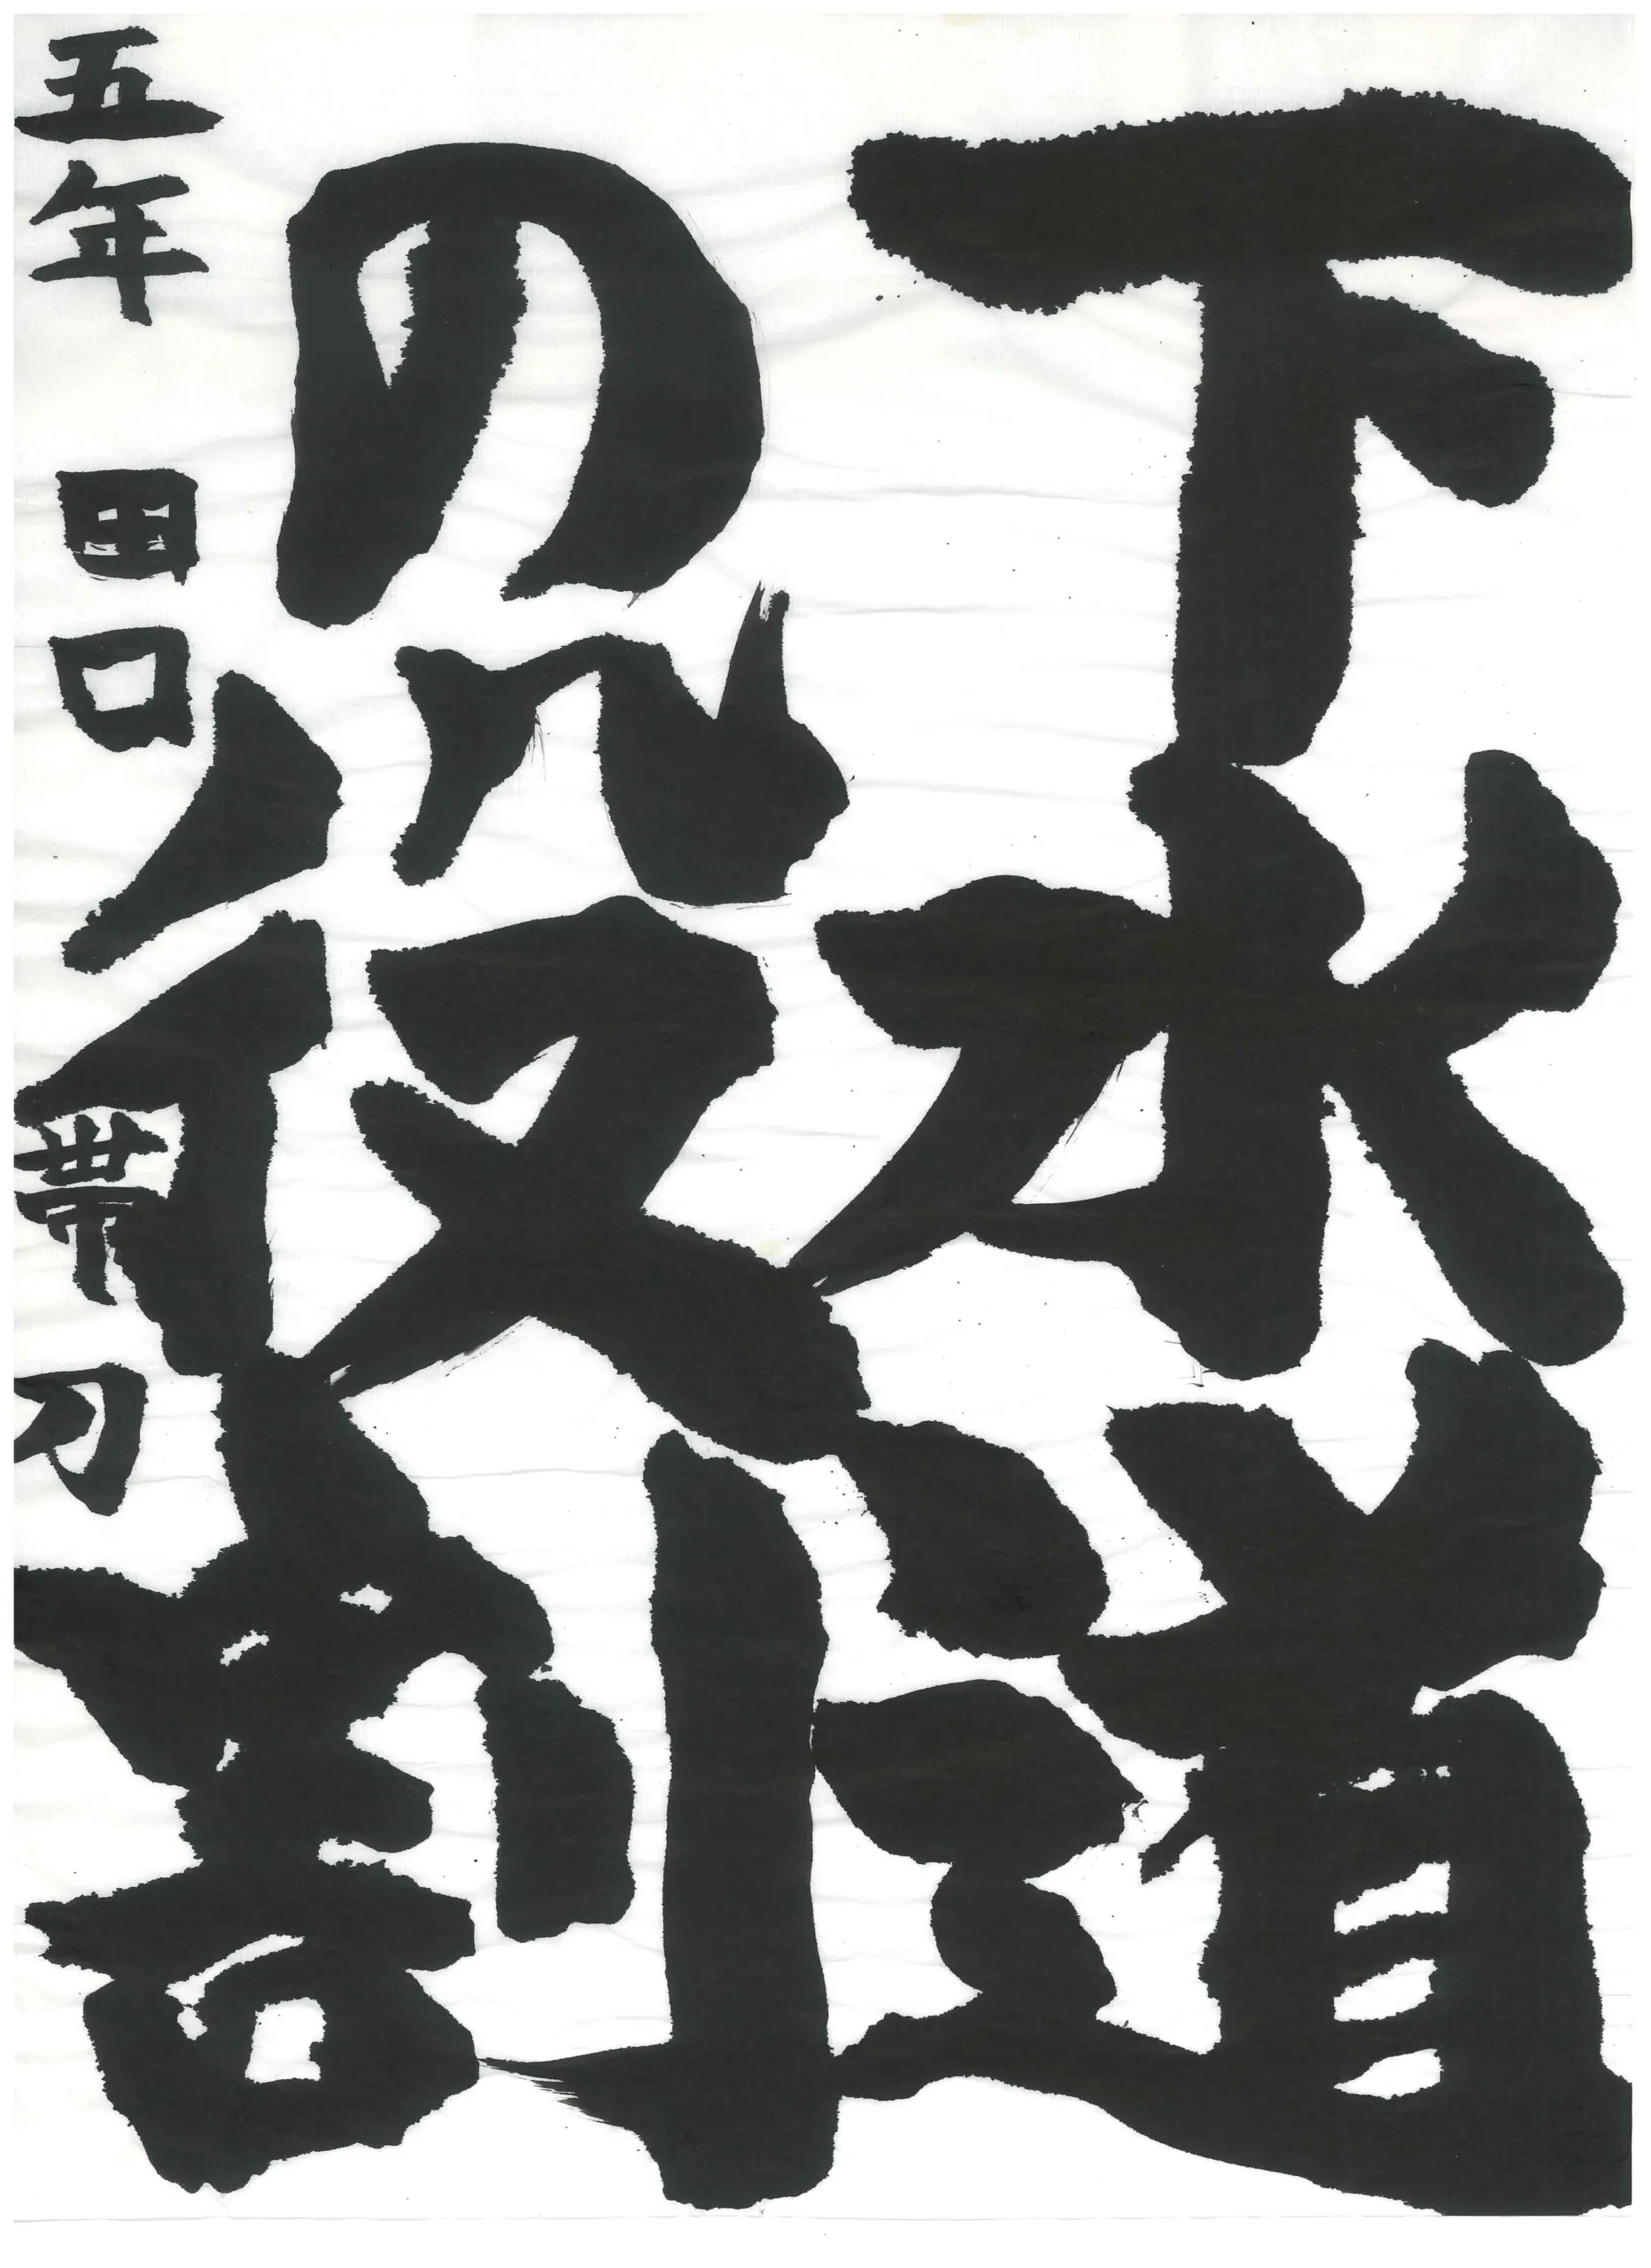 下水道
の役割
五年 田口 帯刀